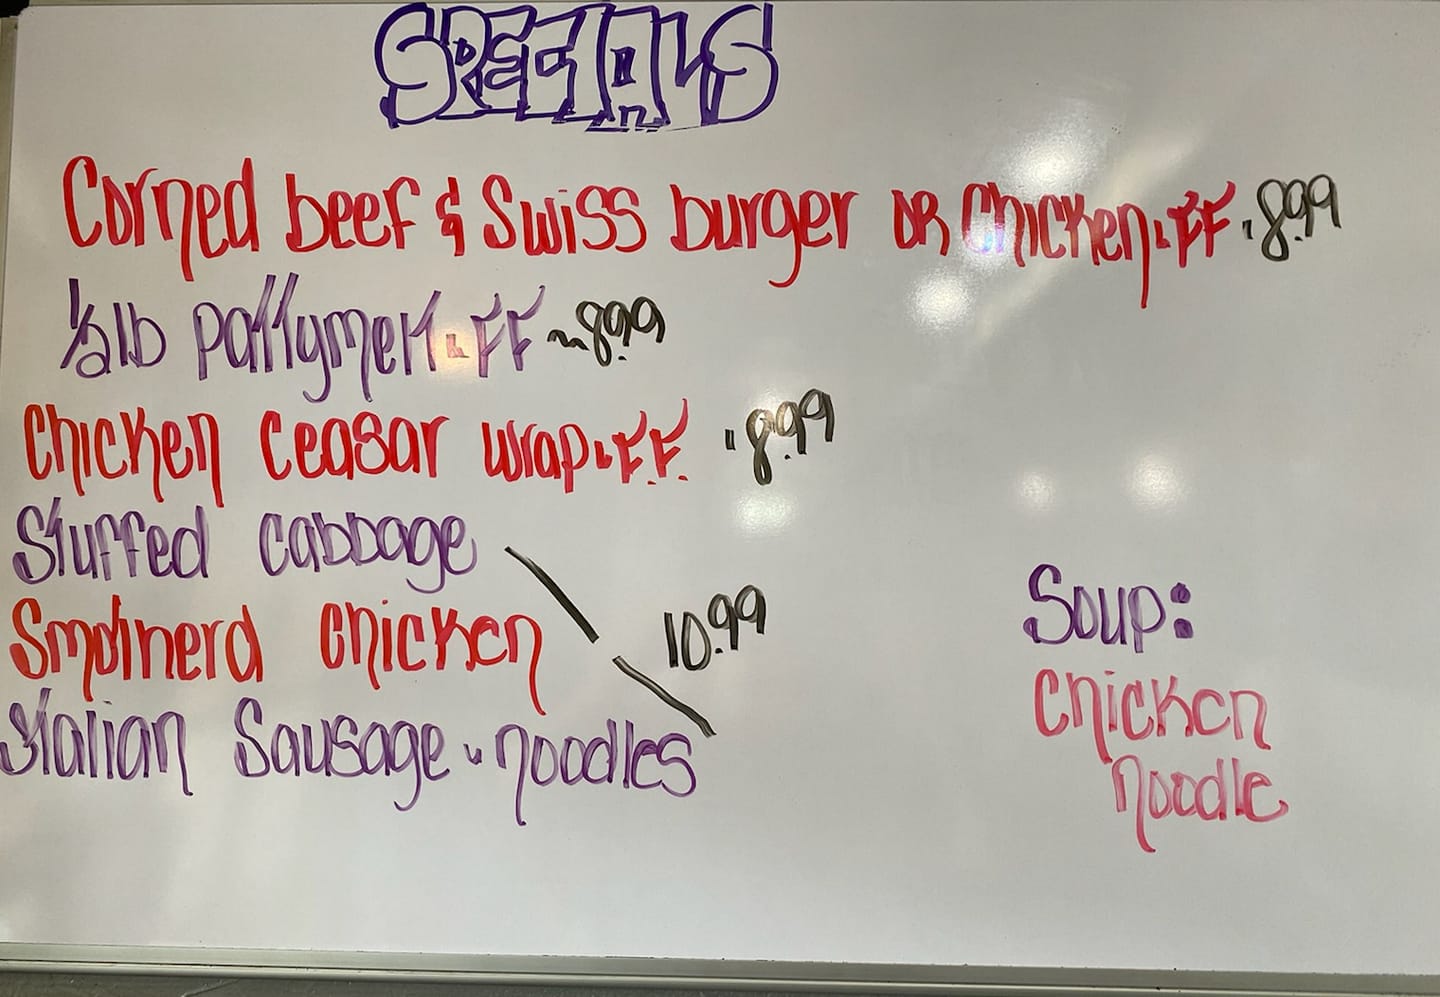 SPECIALS
Corned beef & Swiss burger OR Chicken & FF .8.99
1/2lb Pattymelt & FF ~8.99
Chicken Ceasar wrap & F.F. .8.99
Stuffed cabbage
Smothered chicken 10.99
Italian Sausage & noodles
Soup:
Chicken
Noodle